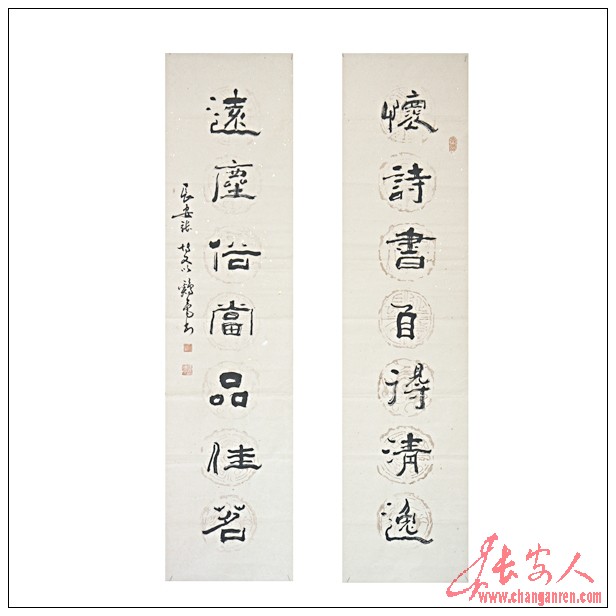 懷詩書自得清逸
遠塵俗當品佳茗
長安人
www.changanren.com